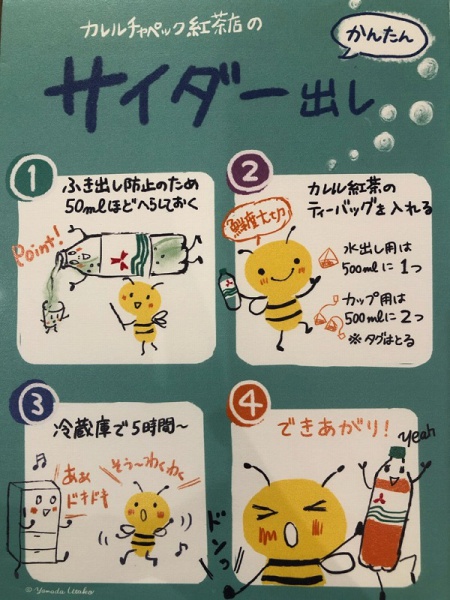 カレルチャペック紅茶店の
かんたん
サイダー出し
1
ふき出し防止のため
50mlほどへらしておく
Point!
2
カレル紅茶の
ティーバッグを入れる
鮮度大切
水出し用は
500mlに1つ
カップ用は
500mlに2つ
※タグはとる
3
冷蔵庫で5時間~
あぁ
ドキドキ
そう~わくわく
4
できあがり!
yeah
ドンっ
© Yamada Utako